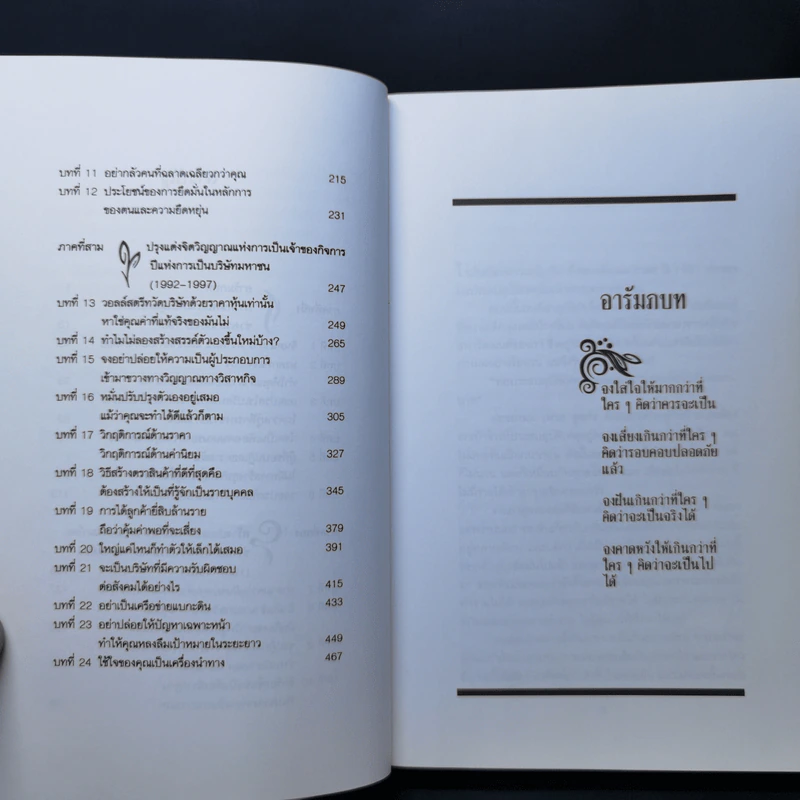 บทที่ 11 อย่ากลัวคนที่ฉลาดเฉลียวกว่าคุณ 215
บทที่ 12 ประโยชน์ของการยึดมั่นในหลักการ
ของตนและความยืดหยุ่น 231
ภาคที่สาม ปรุงแต่งจิตวิญญาณแห่งการเป็นเจ้าของกิจการ
ปีแห่งการเป็นบริษัทมหาชน
(1992-1997) 247
บทที่ 13 วอลล์สตรีทวัดบริษัทด้วยราคาหุ้นเท่านั้น
หาใช่คุณค่าที่แท้จริงของมันไม่ 249
บทที่ 14 ทำไมไม่ลองสร้างสรรค์ตัวเองขึ้นใหม่บ้าง? 265
บทที่ 15 จงอย่าปล่อยให้ความเป็นผู้ประกอบการ
เข้ามาขวางทางวิญญาณทางวิสาหกิจ 289
บทที่ 16 หมั่นปรับปรุงตัวเองอยู่เสมอ
แม้ว่าคุณจะทำได้ดีแล้วก็ตาม 305
บทที่ 17 วิกฤติการณ์ด้านราคา
วิกฤติการณ์ด้านค่านิยม 327
บทที่ 18 วิธีสร้างตราสินค้าที่ดีที่สุดคือ
ต้องสร้างให้เป็นที่รู้จักเป็นรายบุคคล 345
บทที่ 19 การได้ลูกค้ายี่สิบล้านราย
ถือว่าคุ้มค่าพอที่จะเสี่ยง 379
บทที่ 20 ใหญ่แค่ไหนก็ทำตัวให้เล็กได้เสมอ 391
บทที่ 21 จะเป็นบริษัทที่มีความรับผิดชอบ
ต่อสังคมได้อย่างไร 415
บทที่ 22 อย่าเป็นเครือข่ายแบกะดิน 433
บทที่ 23 อย่าปล่อยให้ปัญหาเฉพาะหน้า
ทำให้คุณหลงลืมเป้าหมายในระยะยาว 449
บทที่ 24 ใช้ใจของคุณเป็นเครื่องนำทาง 467
อารัมภบท
จงใส่ใจให้มากกว่าที่
ใคร ๆ คิดว่าควรจะเป็น
จงเสี่ยงเกินกว่าที่ใคร ๆ
คิดว่ารอบคอบปลอดภัย
แล้ว
จงฝันเกินกว่าที่ใคร ๆ
คิดว่าจะเป็นจริงได้
จงคาดหวังให้เกินกว่าที่
ใคร ๆ คิดว่าจะเป็นไป
ได้